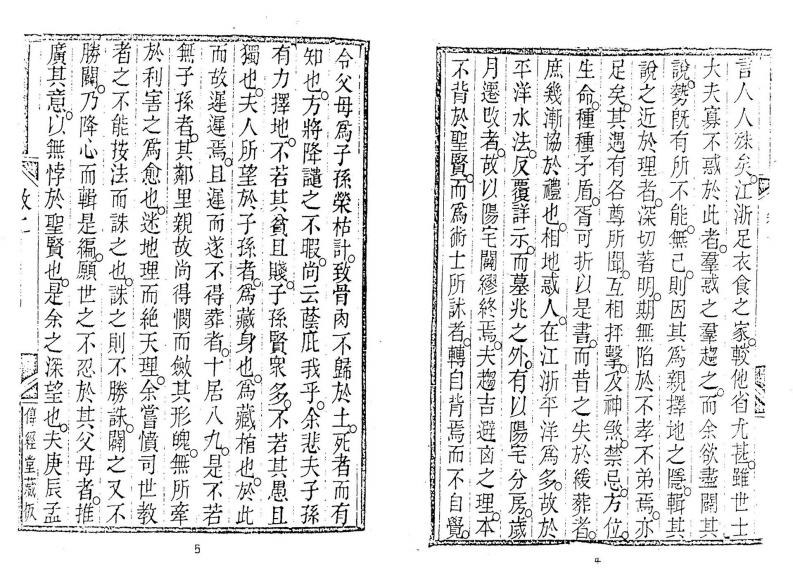 言人人殊矣。江浙足衣食之家。較他省尤甚。雖世士
大夫寡不惑於此者。羣惑之羣趨之。而余欲盡闢其
說。勢既有所不能。無已。則因其為親擇地之隱。輯其
說之近於理者。深切著明。期無陷於不孝不弟焉。亦
足矣。其遇有各尊所聞。互相抨擊。及神煞禁忌。方位
生命。種種矛盾。胥可折以是書。而昔之失於緩葬者。
庶幾漸協於禮也。相地惑人。在江浙平洋為多。故於
平洋水法。反覆詳示。而墓兆之外。有以陽宅分房。歲
月遷改者。故以陽宅闢繆終焉。夫趨吉避凶之理。本
不背於聖賢。而為術士所訹者。轉自背焉而不自覺。
4
令父母為子孫榮枯計。致骨肉不歸於土。死者而有
知也。方將降譴之不暇。尚云蔭庇我乎。余悲夫子孫
有力擇地。不若其貧且賤。子孫賢眾多。不若其愚且
獨也。夫人所望於子孫者。為藏身也。為藏棺也。於此
而故遲遲焉。且遲而遂不得葬者。十居八九。是不若
無子孫者。其鄰里親故尚得憫而斂其形魄。無所牽
於利害之為愈也。迷地理而絕天理。余嘗憤司世教
者之不能按法而誅之也。誅之則不勝誅。闢之又不
勝闢。乃降心而輯是編。願世之不忍於其父母者。推
廣其意。以無悖於聖賢也。是余之深望也。夫庚辰孟
傳經堂藏板
5